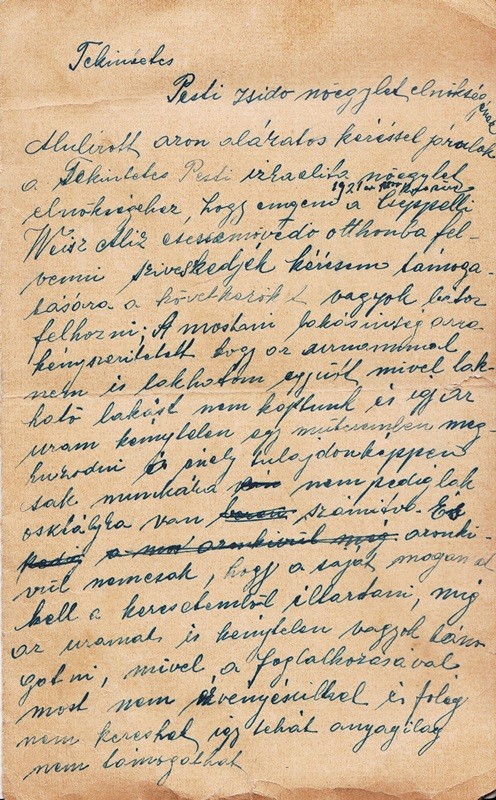 Tekintetes
Pesti zsido nőegylet elnökség
ének
Alulirott azon alázatos kéréssel járulok
a Tekintetes Pesti izraelita nőegylet
1921
elnökségéhez, hogy engem a Cseppelli
Weisz Aliz csecsemővédo otthonba fel-
venni sziveskedjék kérésem támoga-
tására a következőket vagyok bátor
felhozni; A mostani lakásinség arra
kényszeritetett hogy az urammal
nem is lakhatom együtt mivel lak-
ható lakást nem kaptunk és igy az
uram kénytelen egy műteremben meg-
huzodni és mely tulajdonképpen
csak munkára nem pedig lak
oskiályba van számitva. És
azonki-
vül nemcsak, hogy a saját magamat
kell a keresetemből eltartani, mig
az uramat is kénytelen vagyok támo
gatni, mivel a foglalkozásával
most nem érvényesülhet és főleg
nem kereshet igy tehát anyagilag
nem támogathat